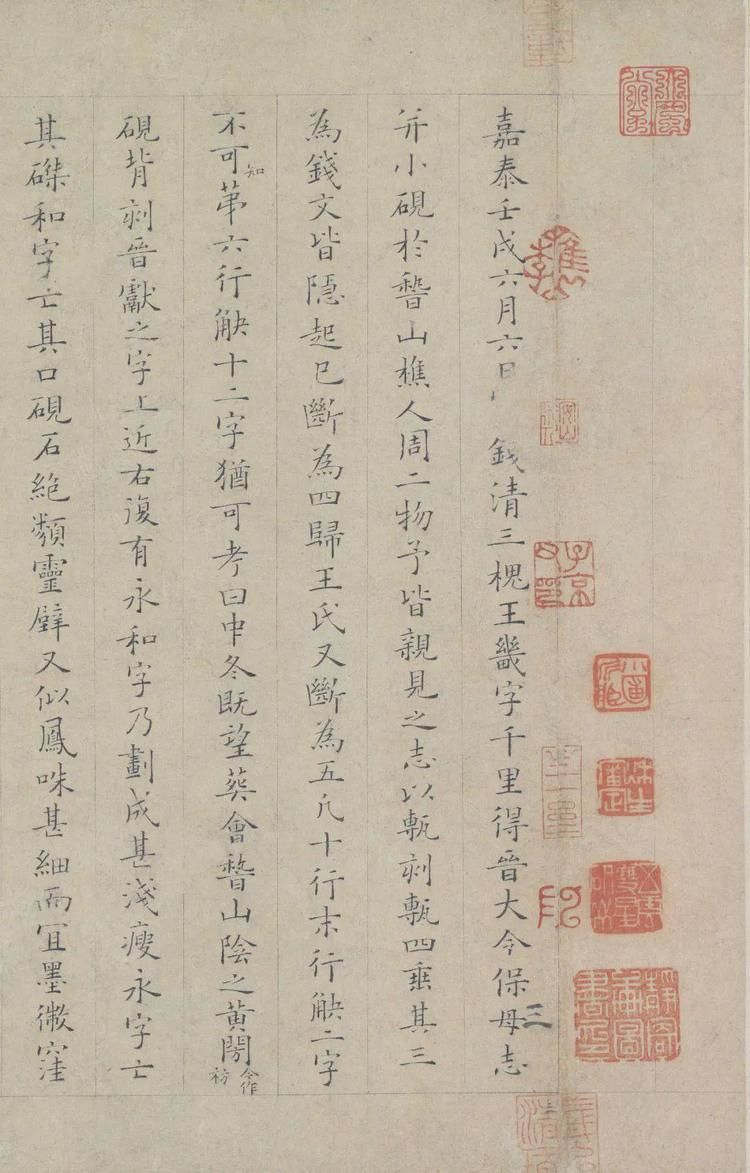 嘉泰壬戌六月六日錢清三槐王畿字千里得晉大令保母志
并小硯於稽山樵人周二物予皆親見之志以甎刻甎四垂其三
為錢文皆隱起已斷為四歸王氏又斷為五凡十行末行缺二字
不可知第六行缺十二字猶可考曰中冬既望葬會稽山陰之黃閍今作祊
硯背刻晉獻之字上近右復有永和字乃劃成甚淺瘦永字亡
其磔和字亡其口硯石絕類靈璧又似鳳咮甚細而宜墨微窪
三
子京